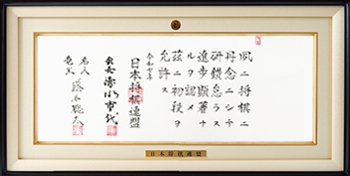 夙ニ将棋ニ
丹念ニシテ
研鑽怠ラス
進歩顕著ナ
ルヲ認メ
茲ニ初段ヲ
允許ス
令和七年
日本将棋連盟
会長 清水市代
名人
竜王 藤井聡太
日本将棋連盟